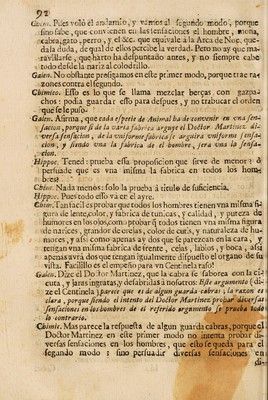 92
Galen. Pues voló el andamio, y vamos al segundo modo, porque
sino sabe, que convienen en las sensaciones el hombre, mona,
cabra, gato, perro, y el &c. que equivale à la Arca de Noe, que-
dala duda, de qual de ellos percibe la verdad. Pero no ay que ma-
ravillarse, que harto ha despuntado antes, y no siempre cabe
todo desde la nariz al colodrillo.
Galen. No obstante prosigamos en este primer modo, porque trae ra-
zones contra el segundo.
Chimico. Esso es lo que se llama mezclar berças, con gazpa-
chos: podia guardar esso para despues, y no trabucar el orden
que se le puso.
Galen. Afirma, que cada especie de Animal ha de convenir en vna sen-
sacion, porque si de varia fabrica arguye el Doctor Martinez di-
versa sensacion, de la vniforme fabrica se arguirà vniforme sensa-
cion, y siendo vna la fabrica de el hombre, serà vna la sensa-
cion.
Hippoc. Tened: prueba essa proposicion que sirve de menor à
persuade que es vna misma la fabrica en todos los hom-
bres?
Chim. Nada menos: solo la prueba à titulo de suficiencia.
Hippoc. Pues todo esso và en el ayre.
Chim. Tan facil es probar que todos los hombres tienen vna misma fi-
gura de lente, color, y fabrica de tunicas, y calidad, y pureza de
humores en los ojos, como probar q̃ todos tienen vna misma figura
de narices, grandor de orejas, color de cutis, y naturaleza de hu-
mores, y assi como apenas ay dos que se parezcan en la cara, y
tengan vna misma fabrica de frente, cejas, labios, y boca, assi
apenas avrà dos que tengan igualmente dispuesto el organo de su
vista. Facilillo es el empeño para vn Centinela rasa.
Galen. Dize el Doctor Martinez, que la cabra se saborea con la ci-
cuta, y jaras ingratas, y desabridas à nosotros: Este argumento (di-
ze el Centinela) parece que es de algun guarda cabras; la razon es
clara, porque siendo el intento del Doctor Martinez probar diversas
sensaciones en los hombres de el referido argumento se prueba todo
lo contrario.
Chimic. Mas parece la respuesta de algun guarda cabras, porque el
Doctor Martinez en este primer modo no intenta probar di-
versas sensaciones en los hombres, que esto se queda para el
segundo modo: sino persuadir diversas sensaciones en
di-